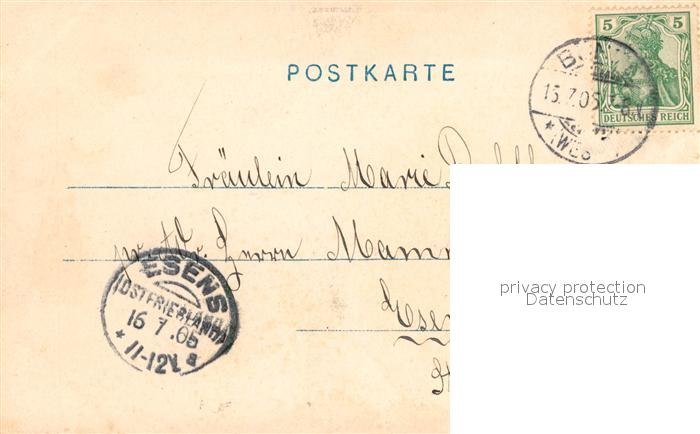 POSTKARTE
5 5
DEUTSCHES REICH
15.7.05
(WES
Fräulein Marie
Herrn Mamm
Esen
ESENS
(OSTFRIESLAND)
16 7.05
* 11-12V. a
privacy protection
Datenschutz